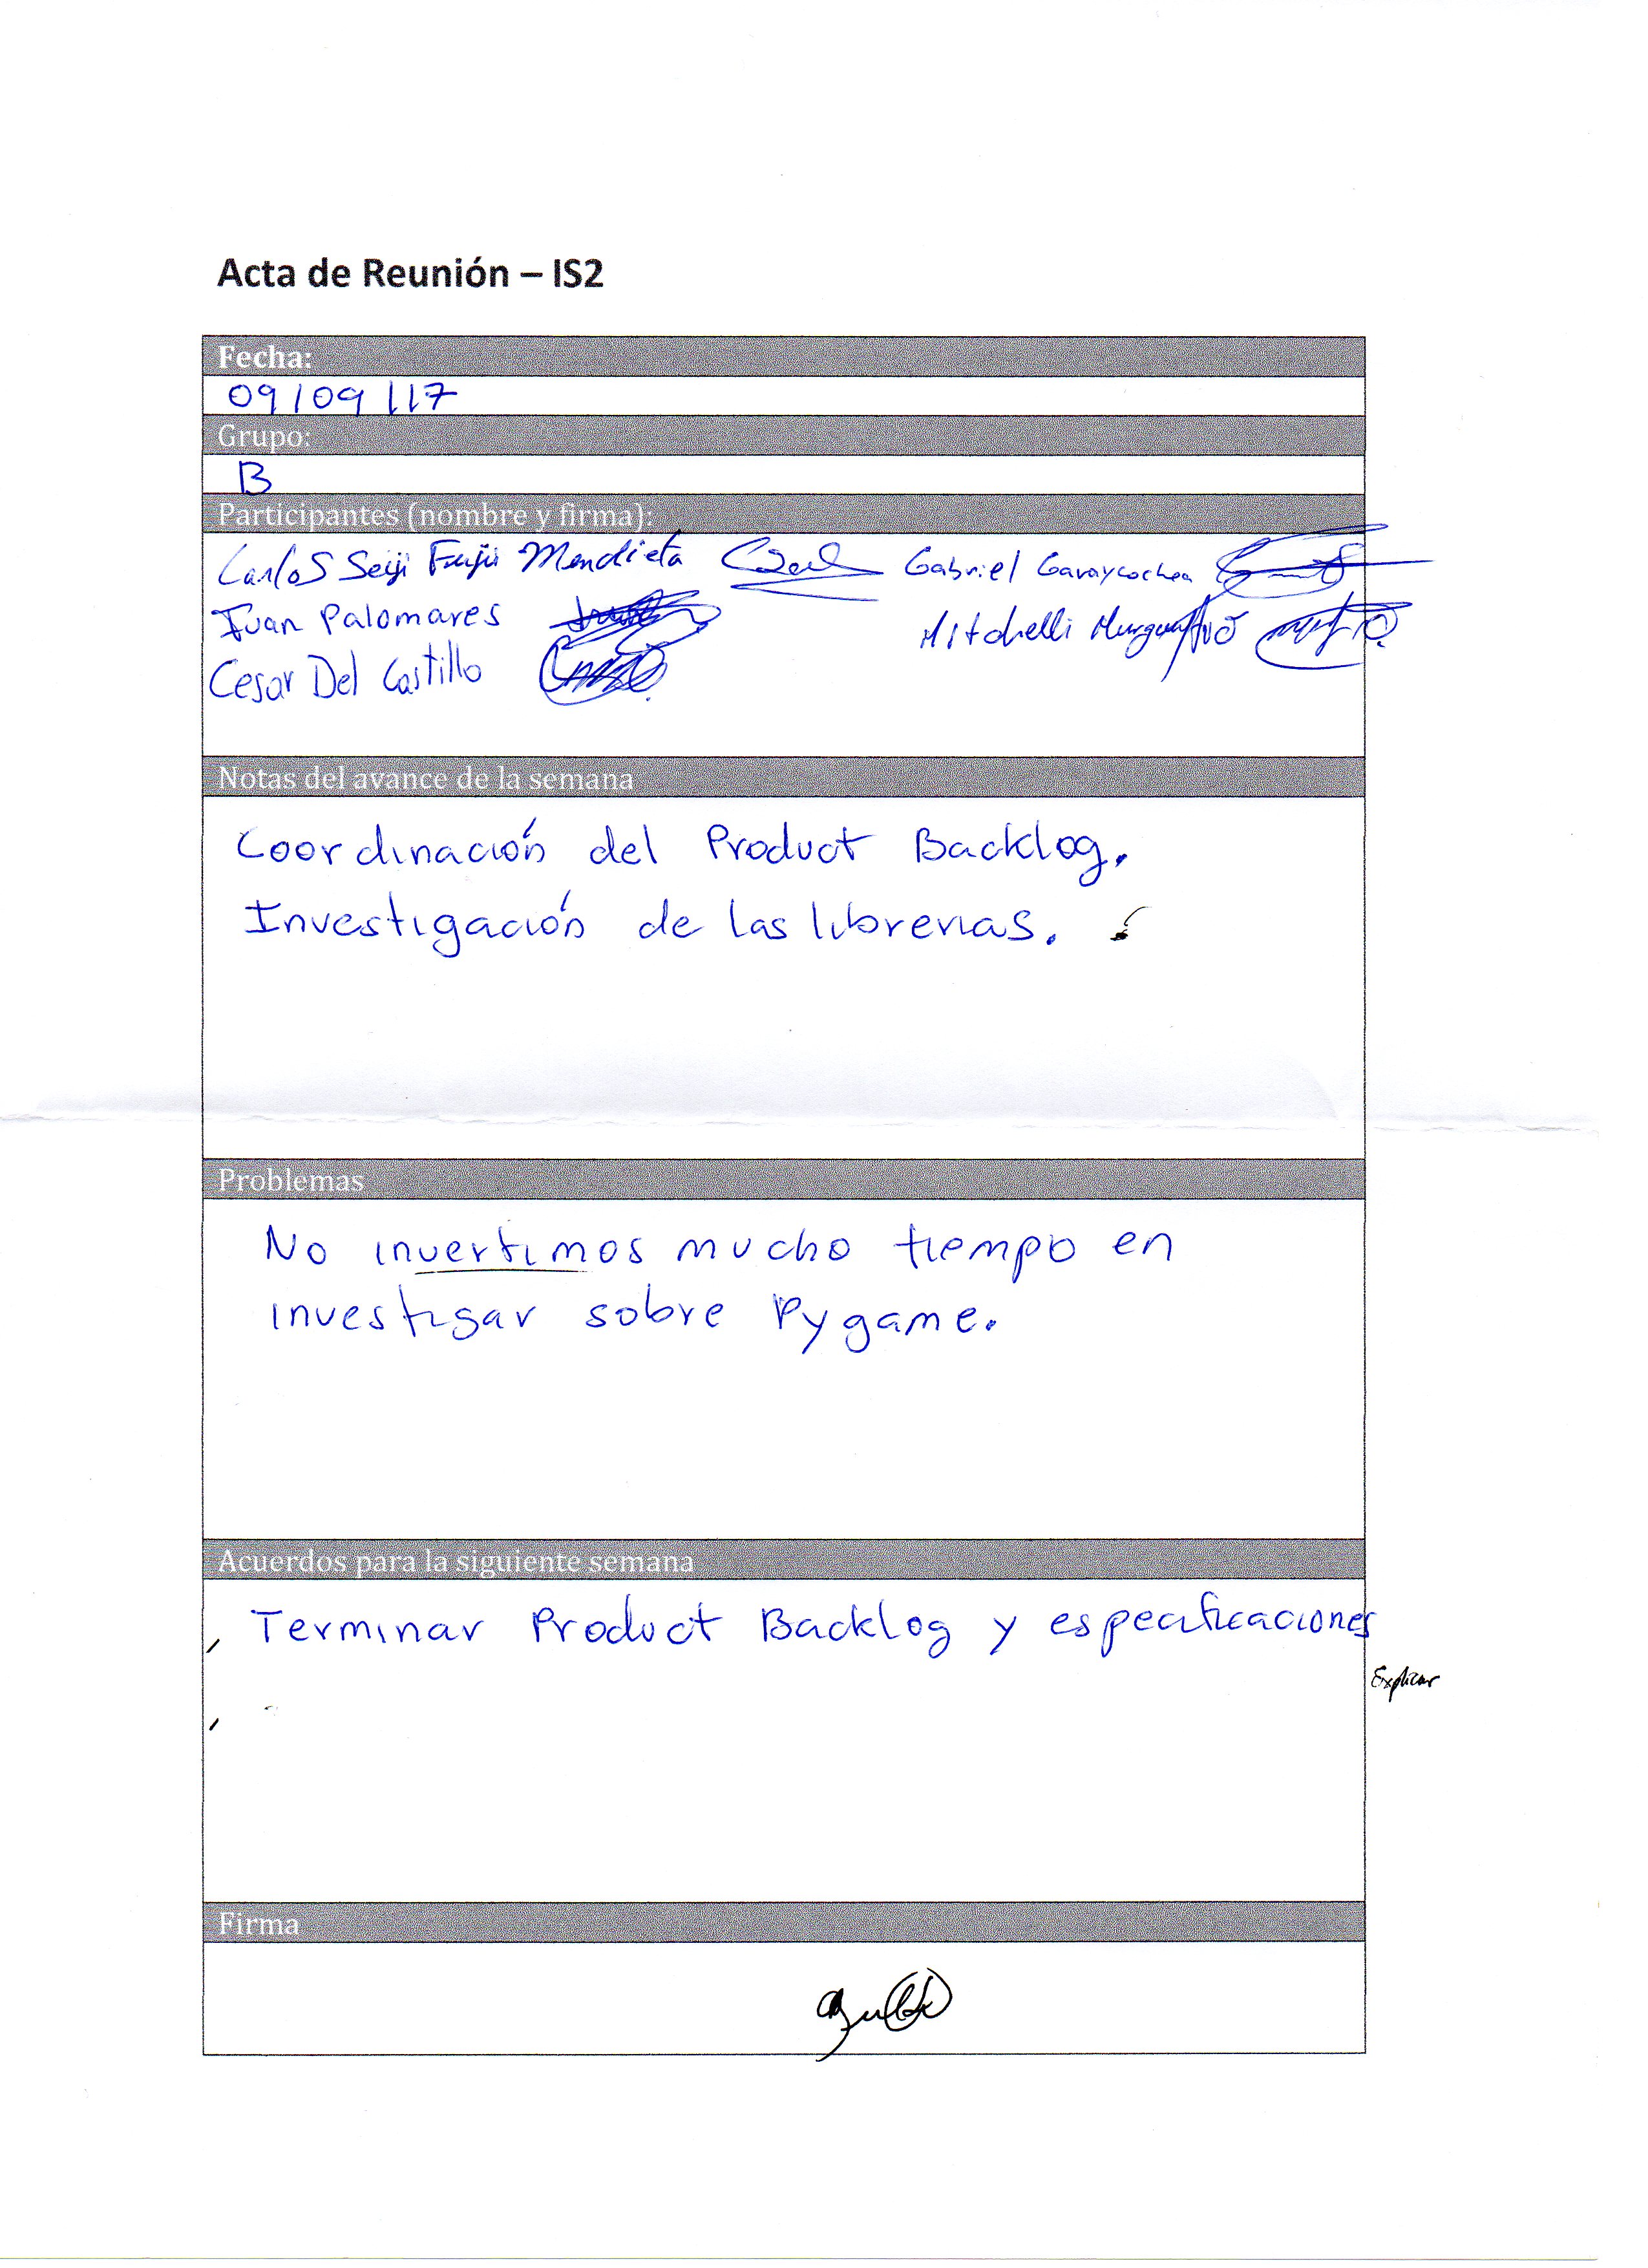 Acta de Reunión – IS2
Fecha:
09/09/17
Grupo:
B
Participantes (nombre y firma):
Carlos Seiji Fujii Mendieta Gabriel Garaycochea
Juan Palomares Mitchelli
Cesar Del Castillo
Notas del avance de la semana
Coordinación del Product Backlog.
Investigación de las librerias.
Problemas
No invertimos mucho tiempo en
investigar sobre Pygame.
Acuerdos para la siguiente semana
Terminar Product Backlog y especificaciones
Explicar
Firma